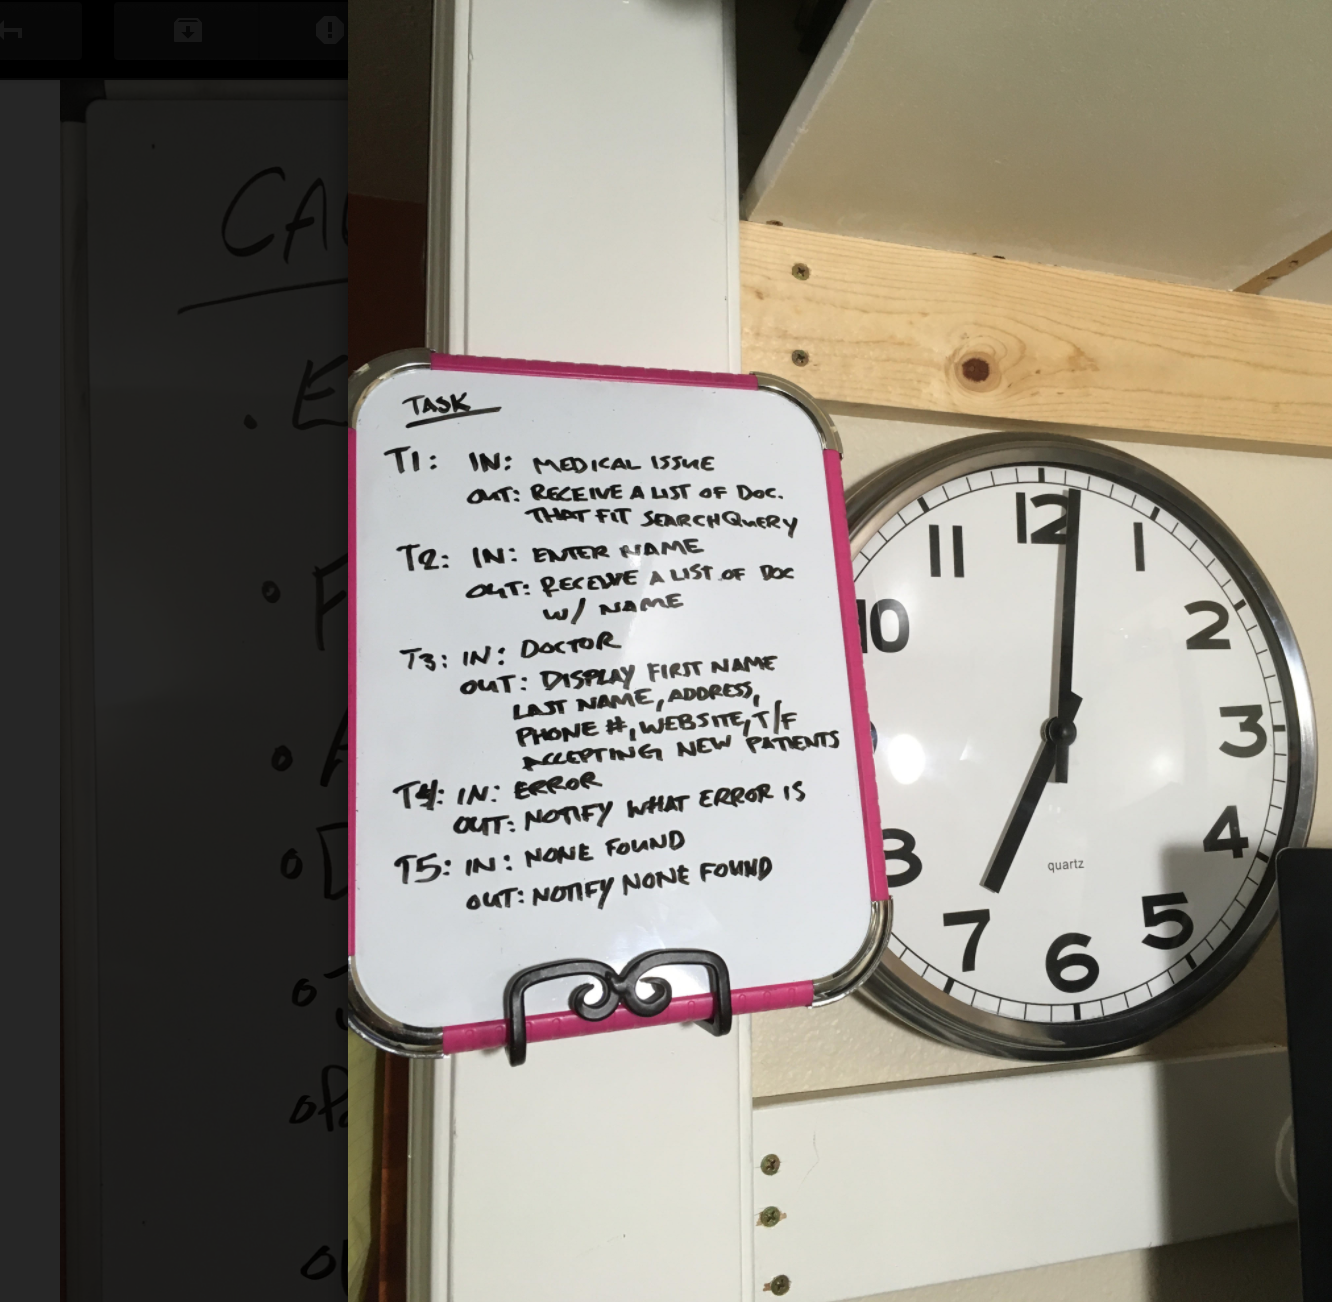 TASK
T1: IN: MEDICAL ISSUE
OUT: RECEIVE A LIST OF DOC.
THAT FIT SEARCH QUERY
T2: IN: ENTER NAME
OUT: RECEIVE A LIST OF DOC
W/ NAME
T3: IN: DOCTOR
OUT: DISPLAY FIRST NAME
LAST NAME, ADDRESS,
PHONE #, WEBSITE, T/F
ACCEPTING NEW PATIENTS
T4: IN: ERROR
OUT: NOTIFY WHAT ERROR IS
T5: IN: NONE FOUND
OUT: NOTIFY NONE FOUND
12
1
2
3
4
5
6
7
8
10
11
quartz